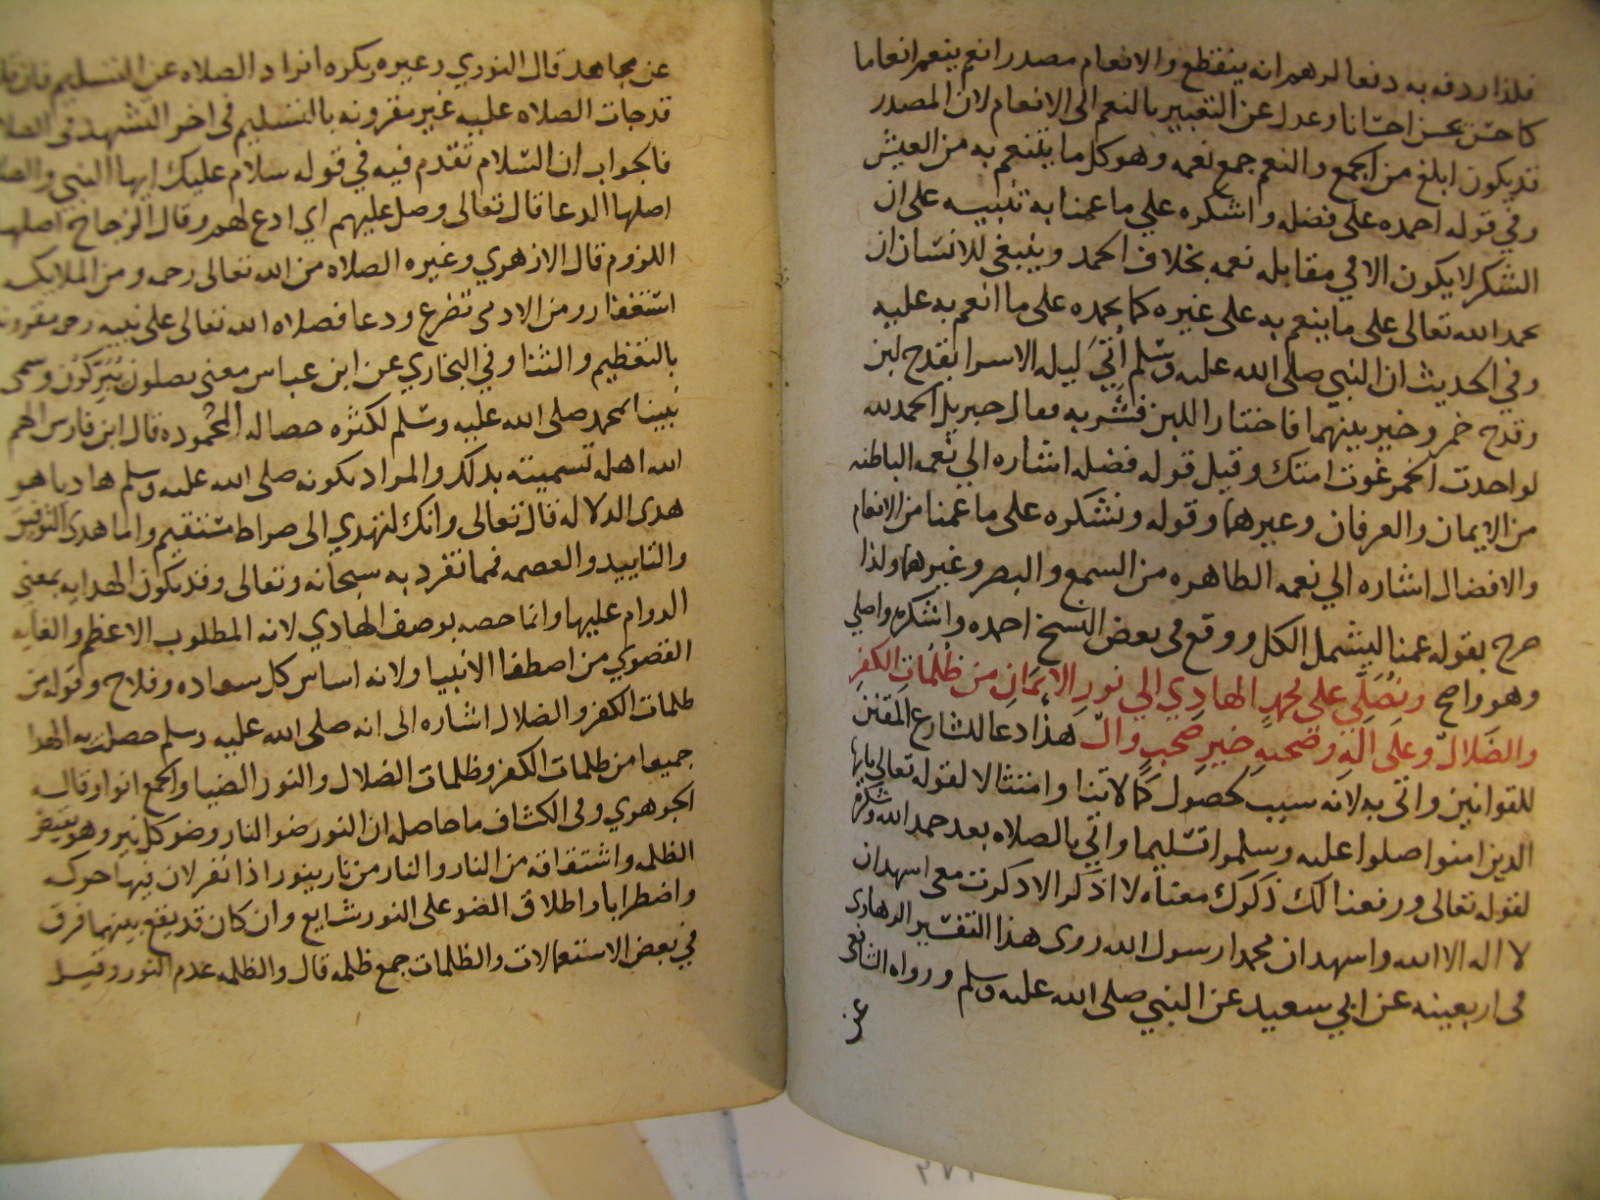 فلذا اردفه به دفعا لوهم انه ينقطع والانعام مصدر انعم ينعم انعاما
كاحسن يحسن احسانا وعدل عن التعبير بالنعم الى الانعام لان المصدر
قد يكون ابلغ من الجمع والنعم جمع نعمه وهو كل ما يتنعم به من العيش
وفي قوله احمده على فضله واشكره علي ما عمنا به تنبيه على ان
الشكر لا يكون الا في مقابله نعمه بخلاف الحمد وينبغي للانسان ان
يحمد الله تعالى على ما ينعم به على غيره كما يحمده على ما انعم به عليه
وفي الحديث ان النبي صلى الله عليه وسلم أُتيَ ليله الاسرا بقدح لبن
وقدح خمر وخير بينهما فاختار اللبن فشربه فقال جبريل الحمد لله
لو اخذت الخمر غوت امتك وقيل قوله فضله اشاره الي نعمه الباطنه
من الايمان والعرفان وغيرهما وقوله ونشكره على ما عمنا من الانعام
والافضال اشاره الي نعمه الظاهره من السمع والبصر وغيرهما ولذا
صرح بقوله عمنا ليشمل الكل ووقع في بعض النسخ احمده واشكره واصلي
وهو واضح ونُصَلّي على محمدٍ الهادي الي نورِ الايمَانِ من ظُلُمَاتِ الكفرِ
والضَلالِ وعلى اله وصَحبهِ خيرِ صَحبٍ والٍ هَذا دعا للشارع المقنن
للقوانين واتي به لانه سبب لحصول كمالاتنا وامتثالا لقوله تعالى يا ايها
الذين امنوا صلوا عليه وسلموا تسليما واتي بالصلاه بعد حمد الله وشكره
لقوله تعالى ورفعنا لك ذكرك معناه لا اذكر الا ذكرت معى اشهد ان
لا اله الا الله واشهد ان محمدا رسول الله روى هذا التفسير الرهاوى
فى اربعينه عن ابي سعيد عن النبي صلى الله عليه وسلم ورواه الشافعى
عن
عن مجاهد قال النووي وغيره يكره افراد الصلاه عن التسليم فان قلت
قد جات الصلاه عليه غير مقرونه بالتسليم فى اخر التشهد فى الصلا
فالجواب ان السّلام تقدم فيه في قوله سلام عليك ايها النبي والصلا
اصلها الدعا قال تعالى وصل عليهم اي ادع لهم وقال الزجاج اصلها
اللزوم قال الازهري وغيره الصلاه من الله تعالى رحمه ومن الملايكه
استغفار ومن الادمى تضرع ودعا فصلاه الله تعالى على نبيه رحمه مقرونه
بالتعظيم والثنا وفي البخاري عن ابن عباس معنى يصلون يُبَرِّكُون وسمى
نبينا محمد صلى الله عليه وسلم لكثره خصاله المحموده قال ابن فارس الهم
الله اهله تسميته بذلك والمراد بكونه صلى الله عليه وسلم هاديا هو
هدى الدلاله قال تعالى وانك لتهدي الى صراط مستقيم واما هدى التوفيق
والتاييد والعصمه فمما تفرد به سبحانه وتعالى وقد يكون الهدايه بمعنى
الدوام عليها وانما خصه بوصف الهادي لانه المطلوب الاعظم والغايه
القصوي من اصطفا الانبيا ولانه اساس كل سعاده وفلاح وقوله من
ظلمات الكفر والضلال اشاره الى انه صلى الله عليه وسلم حصلت به الهدا
جميعا من ظلمات الكفر وظلمات الضلال والنور الضيا والجمع انوار قاله
الجوهري وفى الكشاف ما حاصله ان النور ضو النار وضو كل نير وهو نقيض
الظلمه واشتقاقه من النار والنار من نار ينور اذا نفر لان فيها حركه
واضطرابا واطلاق الضو على النور شايع وان كان قد يقع بينهما فرق
في بعض الاستعمالات والظلمات جمع ظلمه قال والظلمه عدم النور وقيل